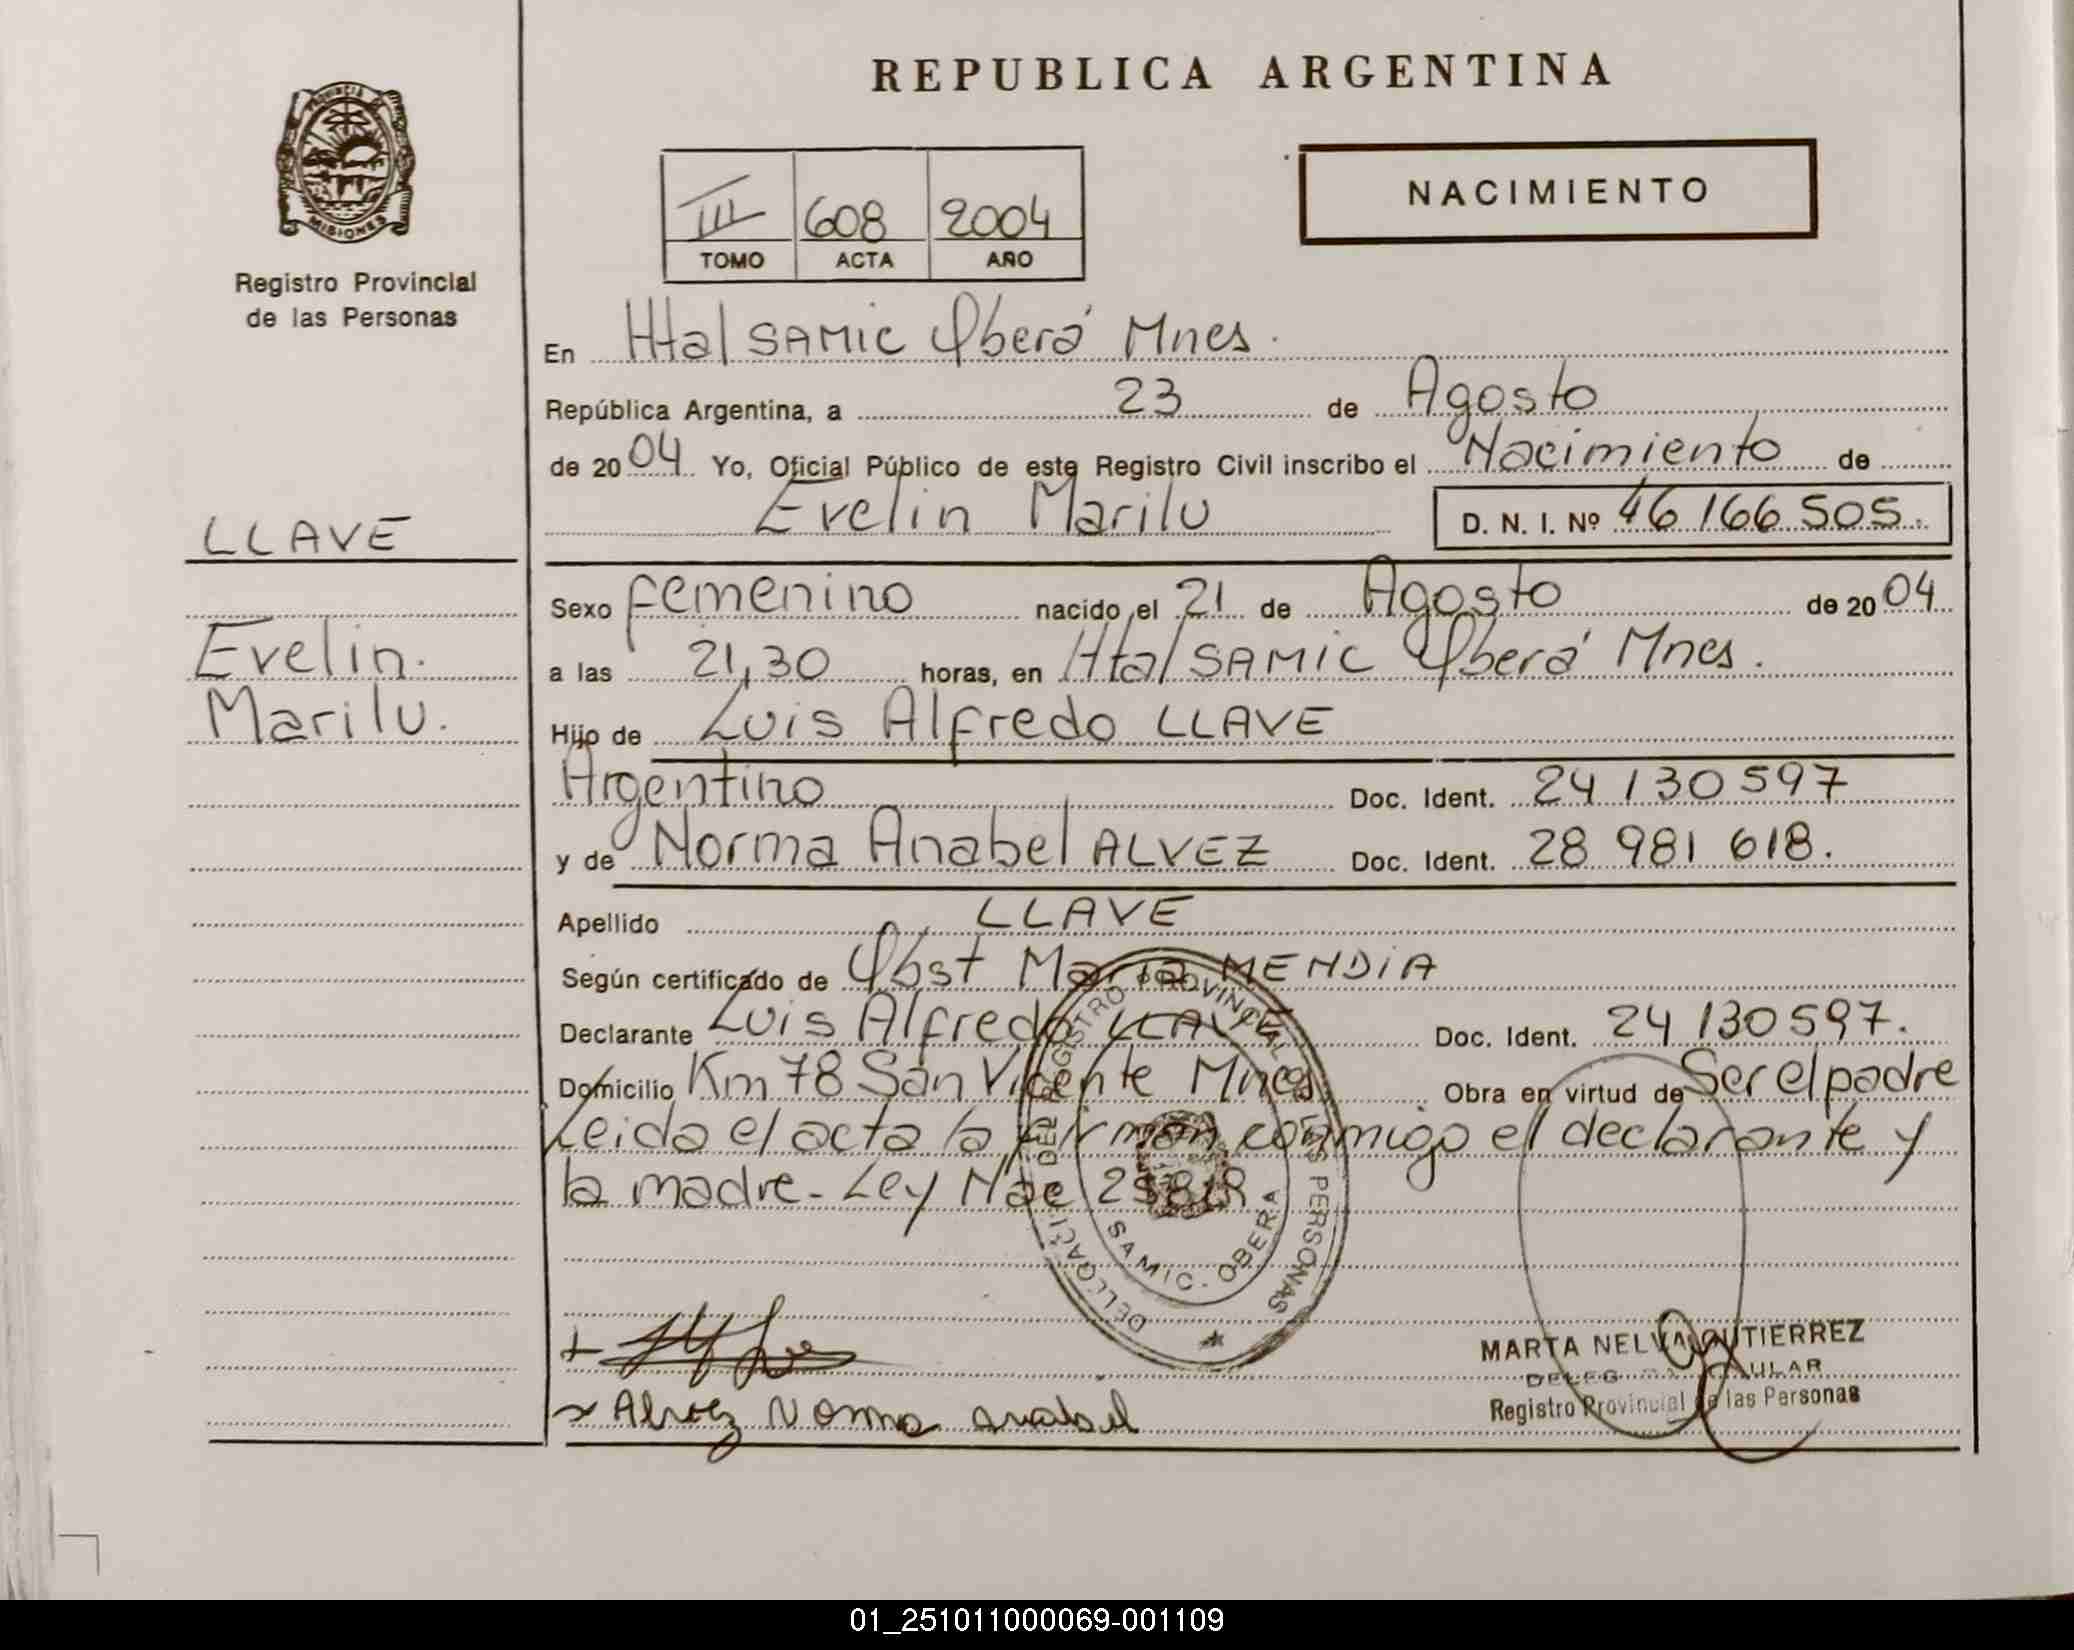 REPUBLICA ARGENTINA
PROVINCIA DE MISIONES
Registro Provincial
de las Personas
III 608 2004
TOMO ACTA AÑO
NACIMIENTO
En Htal SAMIC Oberá Mnes.
República Argentina, a 23 de Agosto
de 2004 Yo, Oficial Público de este Registro Civil inscribo el Nacimiento de
Evelin Marilu D. N. I. Nº 46 166 505.
LLAVE
Evelin.
Marilu.
Sexo femenino nacido el 21 de Agosto de 2004
a las 21,30 horas, en Htal SAMIC Oberá Mnes.
Hijo de Luis Alfredo LLAVE
Argentino Doc. Ident. 24 130 597
y de Norma Anabel ALVEZ Doc. Ident. 28 981 618.
Apellido LLAVE
Según certificado de Obst Maria MENDIA
Declarante Luis Alfredo LLAVE Doc. Ident. 24 130 597.
Domicilio Km 78 San Vicente Mnes Obra en virtud de Ser el padre
Leida el acta la firman conmigo el declarante y
la madre - Ley Nac
DELEGACION DEL REGISTRO PROVINCIAL DE LAS PERSONAS
SAMIC - OBERA
Alvez Norma Anabel
MARTA NELVA GUTIERREZ
DELEGADA TITULAR
Registro Provincial de las Personas
01_251011000069-001109